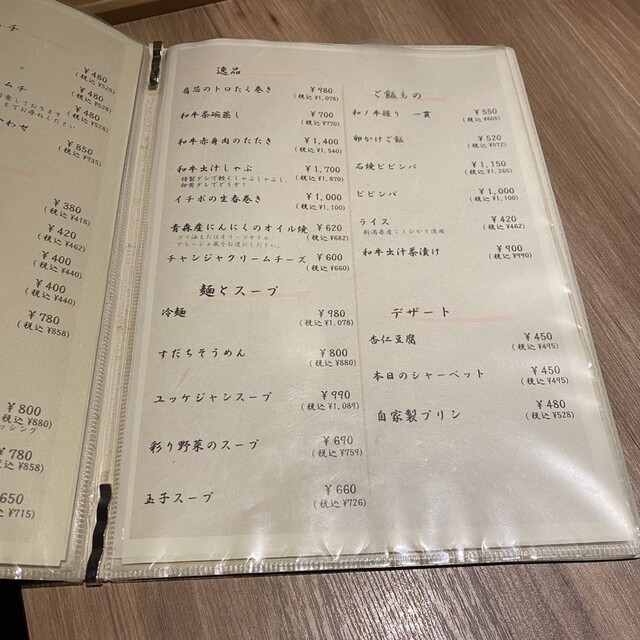 チ
¥480
(税込 ¥528)
¥480
(税込 ¥528)
ムチ
¥480
(税込 ¥528)
わせ
¥850
(税込 ¥935)
¥380
(税込 ¥418)
¥420
(税込 ¥462)
¥400
(税込 ¥440)
¥400
(税込 ¥440)
¥780
(税込 ¥858)
¥800
(税込 ¥880)
ッシング
¥780
(税込 ¥858)
¥650
(税込 ¥715)
逸品
肩芯のトロたく巻き ¥980
(税込 ¥1,078)
和牛茶碗蒸し ¥700
(税込 ¥770)
和牛赤身肉のたたき ¥1,400
(税込 ¥1,540)
和牛出汁しゃぶ ¥1,700
(税込 ¥1,870)
特製ダレで軽くしゃぶしゃぶし、
卵黄ダレでどうぞ!
イチボの生春巻き ¥1,000
(税込 ¥1,100)
青森産にんにくのオイル焼 ¥620
(税込 ¥682)
ゴマ油またはオリーブオイル・
アヒージョ風をお選びください。
チャンジャクリームチーズ ¥600
(税込 ¥660)
麺とスープ
冷麺 ¥980
(税込 ¥1,078)
すだちそうめん ¥800
(税込 ¥880)
ユッケジャンスープ ¥990
(税込 ¥1,089)
彩り野菜のスープ ¥690
(税込 ¥759)
玉子スープ ¥660
(税込 ¥726)
ご飯もの
和ノ牛握り 一貫 ¥550
(税込 ¥605)
卵かけご飯 ¥520
(税込 ¥572)
石焼ビビンバ ¥1,150
(税込 ¥1,265)
ビビンバ ¥1,000
(税込 ¥1,100)
ライス ¥420
(税込 ¥462)
新潟県産こしひかり使用
和牛出汁茶漬け ¥900
(税込 ¥990)
デザート
杏仁豆腐 ¥450
(税込 ¥495)
本日のシャーベット ¥450
(税込 ¥495)
自家製プリン ¥480
(税込 ¥528)